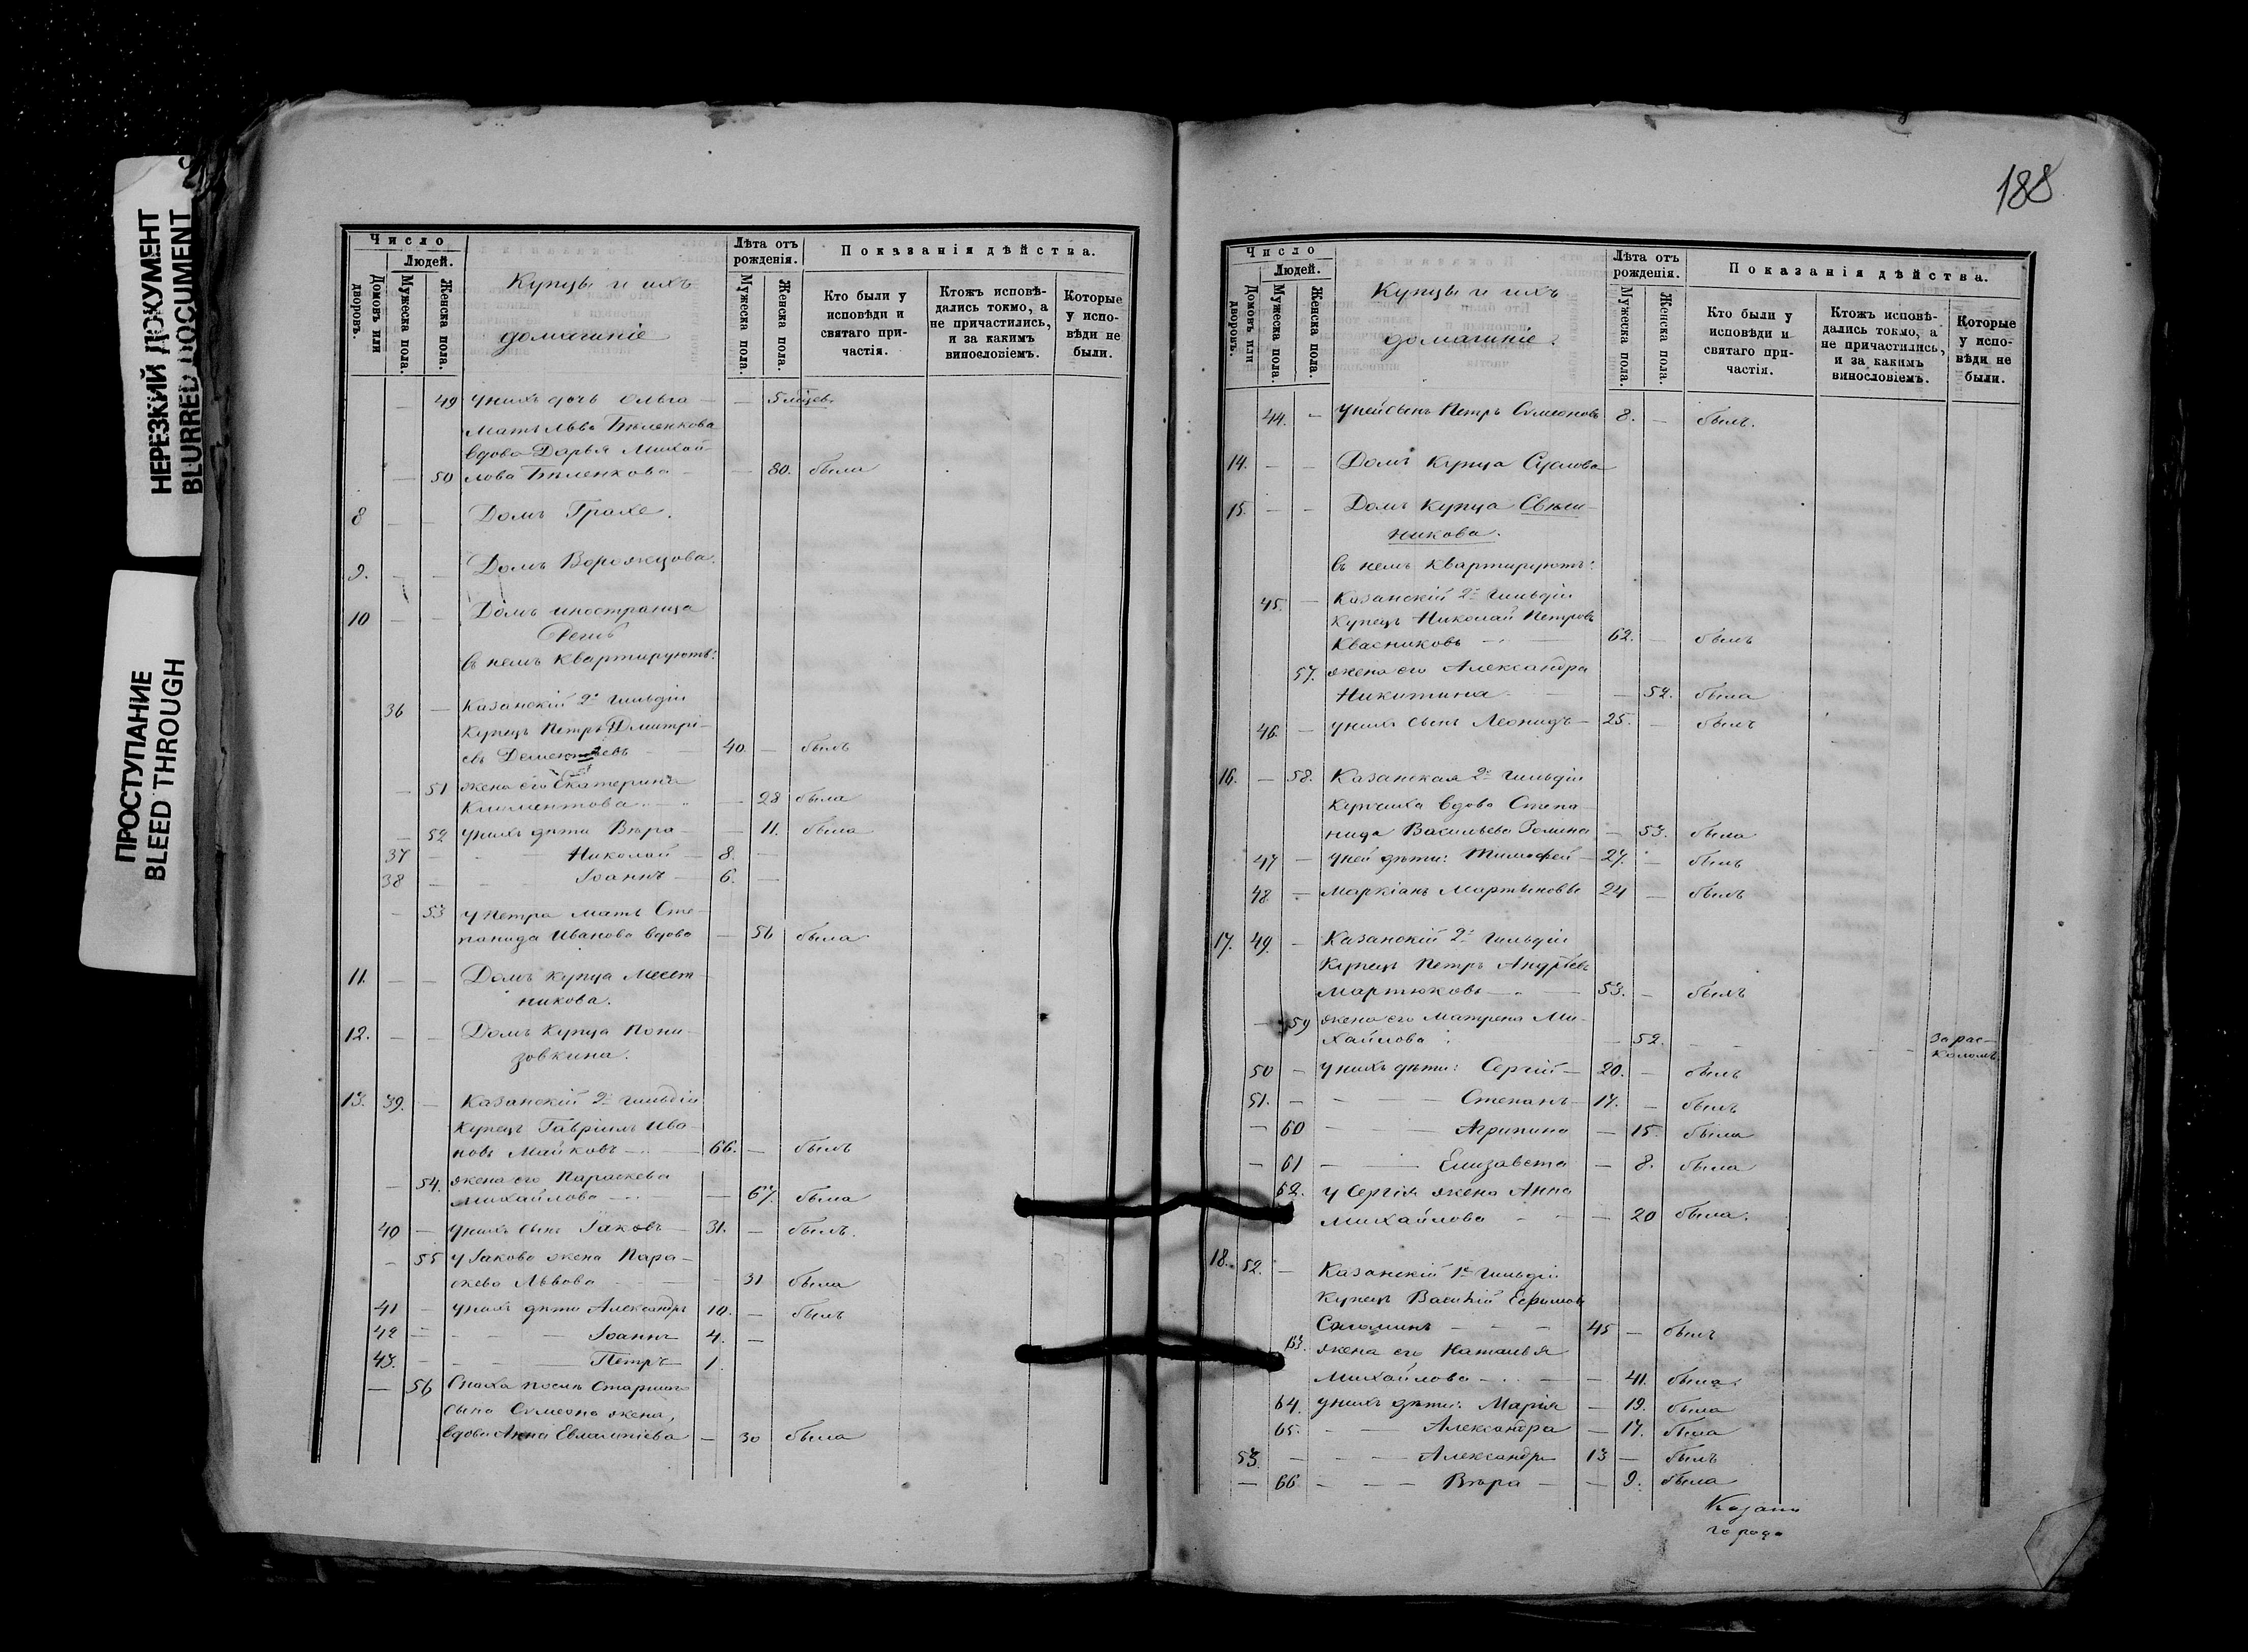 НЕРЕЗКИЙ ДОКУМЕНТ
BLURRED DOCUMENT
ПРОСТУПАНИЕ
BLEED THROUGH
Число
Людей.
Домовъ или дворовъ.
Мужеска пола.
Женска пола.
Купцы и ихъ
домашніе
Лѣта отъ рожденія.
Мужеска пола.
Женска пола.
Показанія дѣйства.
Кто были у исповѣди и святаго причастія.
Ктожъ исповѣдались токмо, а не причастились, и за какимъ винословіемъ.
Которые у исповѣди не были.
— 49 У нихъ дочь Ольга — — 5 мѣсяцев.
Мать Льва Бѣленкова
вдова Дарья Михай-
— 50 лова Бѣленкова — — 80. была
8 — — Домъ Грахе.
9. — — Домъ Ворожцова.
10 — — Домъ иностранца
въ немъ квартируютъ:
36 — Казанскій 2й гильдіи
Купецъ Петръ Дмитрі-
евъ Дементьевъ — 40. — былъ
— 51 жена его Екатерина
Климентова — — 28 была
— 52 у нихъ дѣти Вѣра — — 11. была
37 — — — Николай — 8. —
38 — — — Іоаннъ — 6. —
— 53 У Петра мать Сте-
панида Иванова вдова — 56 была
11. — — Домъ купца Месет-
никова.
12. — — Домъ купца Пони-
зовкина.
13. 39. — Казанскій 2й гильдіи
Купецъ Гавріилъ Ива-
новъ Майковъ — 66. — былъ
— 54. жена его Параскева
Михайлова — — 67. была
40 — У нихъ сынъ Іаковъ — 31. — былъ.
— 55 У Іакова жена Пара-
скева Львова — — 31 была
41 — У нихъ дѣти Александръ 10. — былъ
42 — — — Іоаннъ 4. —
43. — — — Петръ 1.
— 56 Сноха послѣ старшаго
сына Симеона жена,
вдова Анна Евлампіева — 30 была
188
Число
Людей.
Домовъ или дворовъ.
Мужеска пола.
Женска пола.
Купцы и ихъ
домашніе.
Лѣта отъ рожденія.
Мужеска пола.
Женска пола.
Показанія дѣйства.
Кто были у исповѣди и святаго причастія.
Ктожъ исповѣдались токмо, а не причастились, и за какимъ винословіемъ.
Которые у исповѣди не были.
44. — У ней сынъ Петръ Симеоновъ 8. — былъ.
14. — — Домъ купца Суслова
15. — — Домъ купца Свѣш-
никова.
въ немъ квартируютъ:
45. — Казанскій 2й гильдіи
Купецъ Николай Петровъ
Квасниковъ — 62. — былъ
57. жена его Александра
Никитина — — 52. была
46. — У нихъ сынъ Леонидъ — 25. — былъ
16. — 58. Казанская 2й гильдіи
Купчиха вдова Степа-
нида Васильева Зелина — 53. была
47 — У ней дѣти: Тимофей — 27. — былъ
48 — Маркіанъ Мартыновы 24 — былъ
17. 49. — Казанскій 2й гильдіи
Купецъ Петръ Андрѣевъ
Мартюковъ — 53. — былъ
— 59 жена его Матрена Ми-
хайлова — 52. — — — За рас-
коломъ.
50 — У нихъ дѣти: Сергій — 20. — былъ
51. — — — Степанъ — 17. — былъ
— 60 — — Агрипина — 15. была
— 61 — — Елизавета — 8. была
62. У Сергія жена Анна
Михайлова — — 20 была.
18. 52. — Казанскій 1й гильдіи
Купецъ Василій Ефимовъ
Соломинъ — — 45 — былъ
63. жена его Наталья
Михайлова — — 41. была.
64. У нихъ дѣти: Марія — 19. была
65. — — Александра — 17. была
53. — — Александръ 13 — былъ
— 66 — — Вѣра — — 9. была
Казани
города